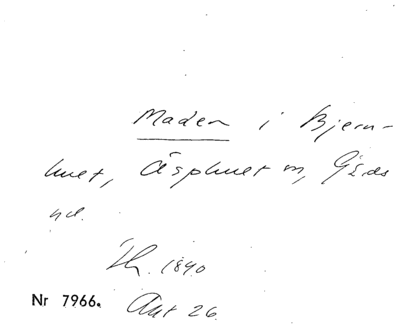 Maden i Bjern-
huet, Åsphuet m, Gärds
hd.
Th. 1840
Nr 7966. Akt 26.